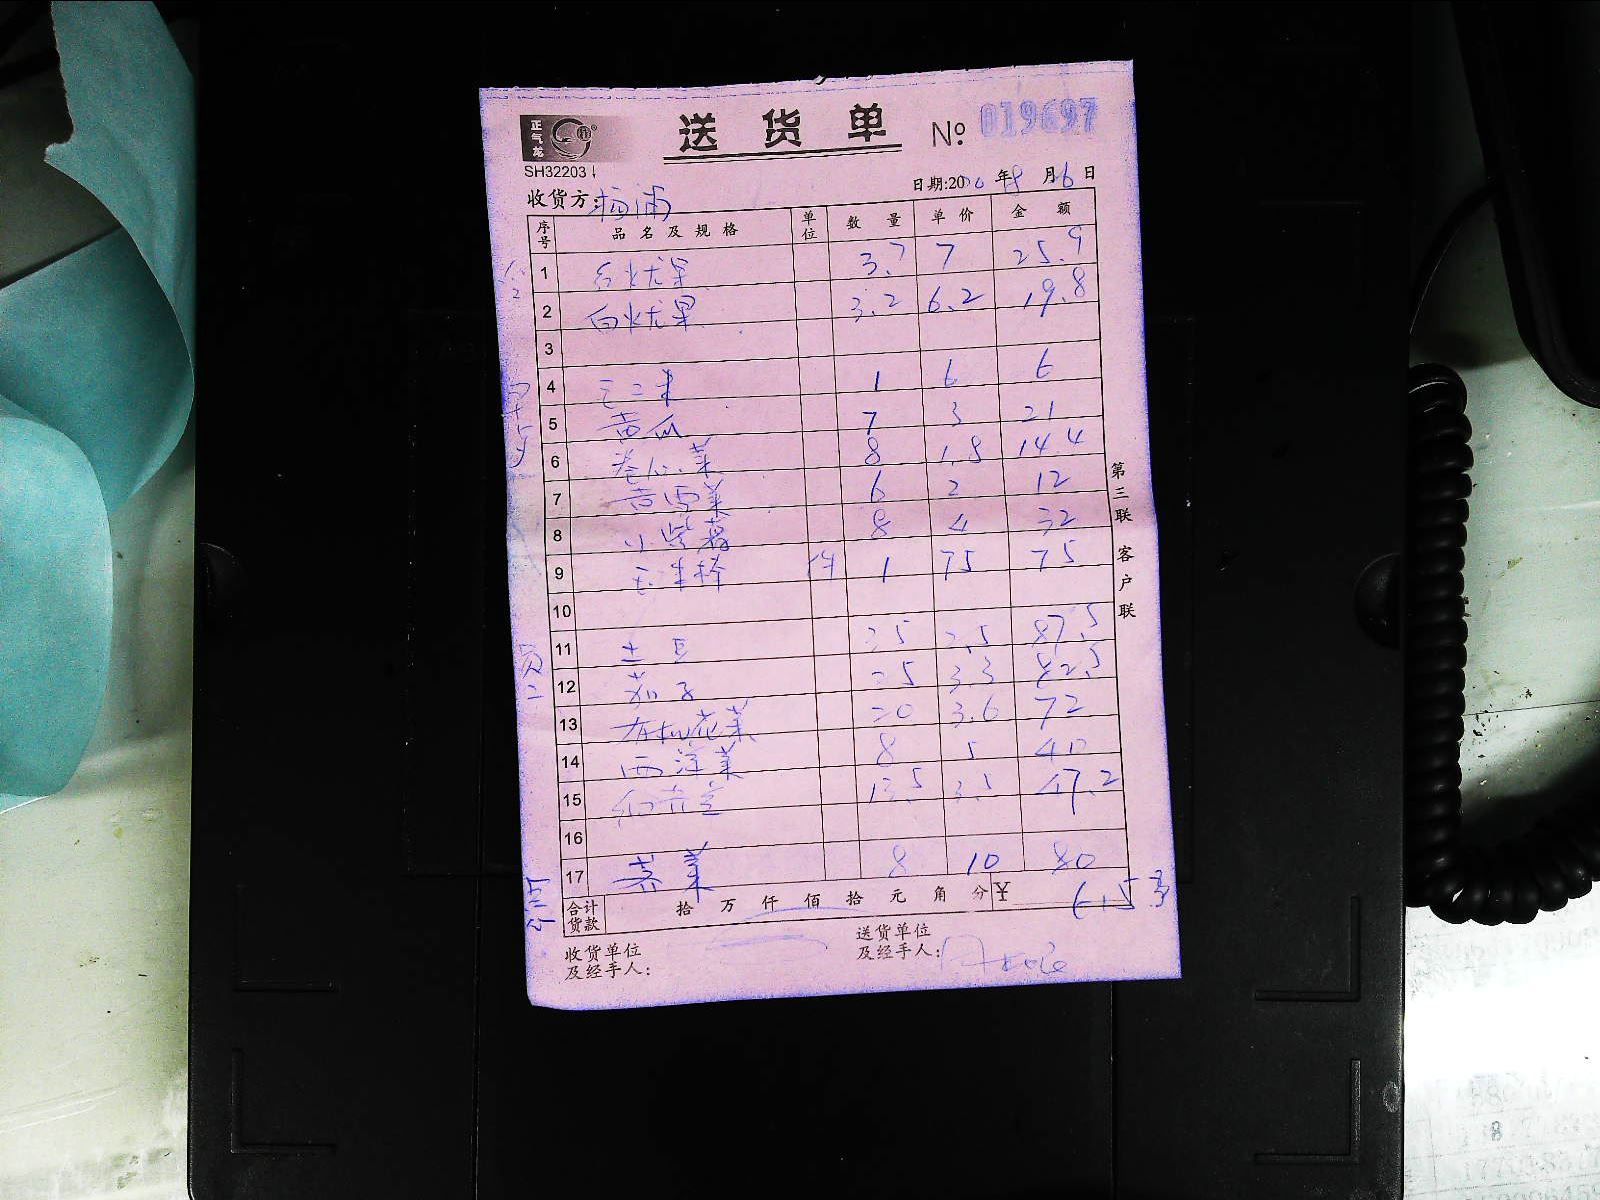 正气龙
送货单 № 019697
SH32203
日期:20 年8月6日
收货方: 杨浦
序号 品名及规格 单位 数量 单价 金额
1 红火龙果 3.7 7 25.9
2 白火龙果 3.2 6.2 19.8
3
4 玉米 1 6 6
5 黄瓜 7 3 21
6 卷心菜 8 1.8 14.4
7 6 2 12
8 小紫薯 8 4 32
9 玉米棒 件 1 75 75
10
11 土豆 35 2.5 87.5
12 茄子 25 3.3 82.5
13 有机花菜 20 3.6 72
14 西洋菜 8 5 40
15 13.5 3.5 47.2
16
17 8 10 80
合计货款 拾 万 仟 佰 拾 元 角 分 ¥ 615.3
收货单位及经手人:
送货单位及经手人:
第三联 客户联